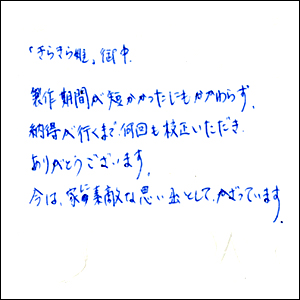 「きらきら姫」御中
製作期間が短かかったにもかかわらず、
納得が行くまで何回も校正いただき
ありがとうございます。
今は、家に素敵な思い出として、かざっています。